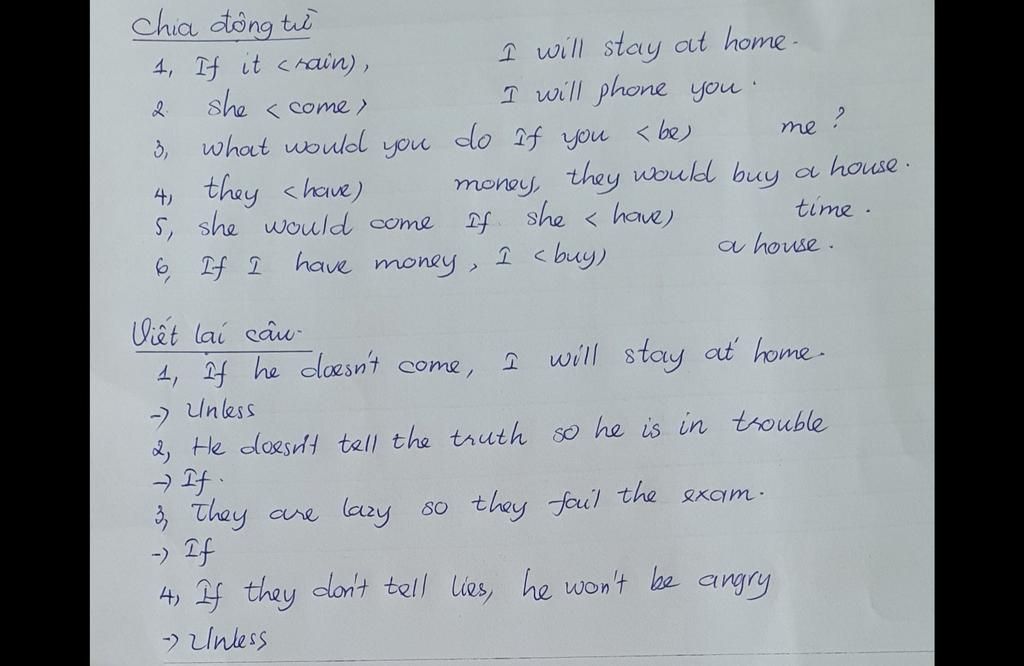 Chia động từ
1, If it <rain), I will stay at home.
2. she <come> I will phone you.
3, what would you do If you <be) me?
4, they <have) money, they would buy a house.
5, she would come If she <have) time.
6, If I have money, I <buy) a house.
Viết lại câu.
1, If he doesn't come, I will stay at home.
-> Unless
2, He doesn't tell the truth so he is in trouble
-> If.
3, They are lazy so they fail the exam.
-> If
4, If they don't tell lies, he won't be angry
-> Unless